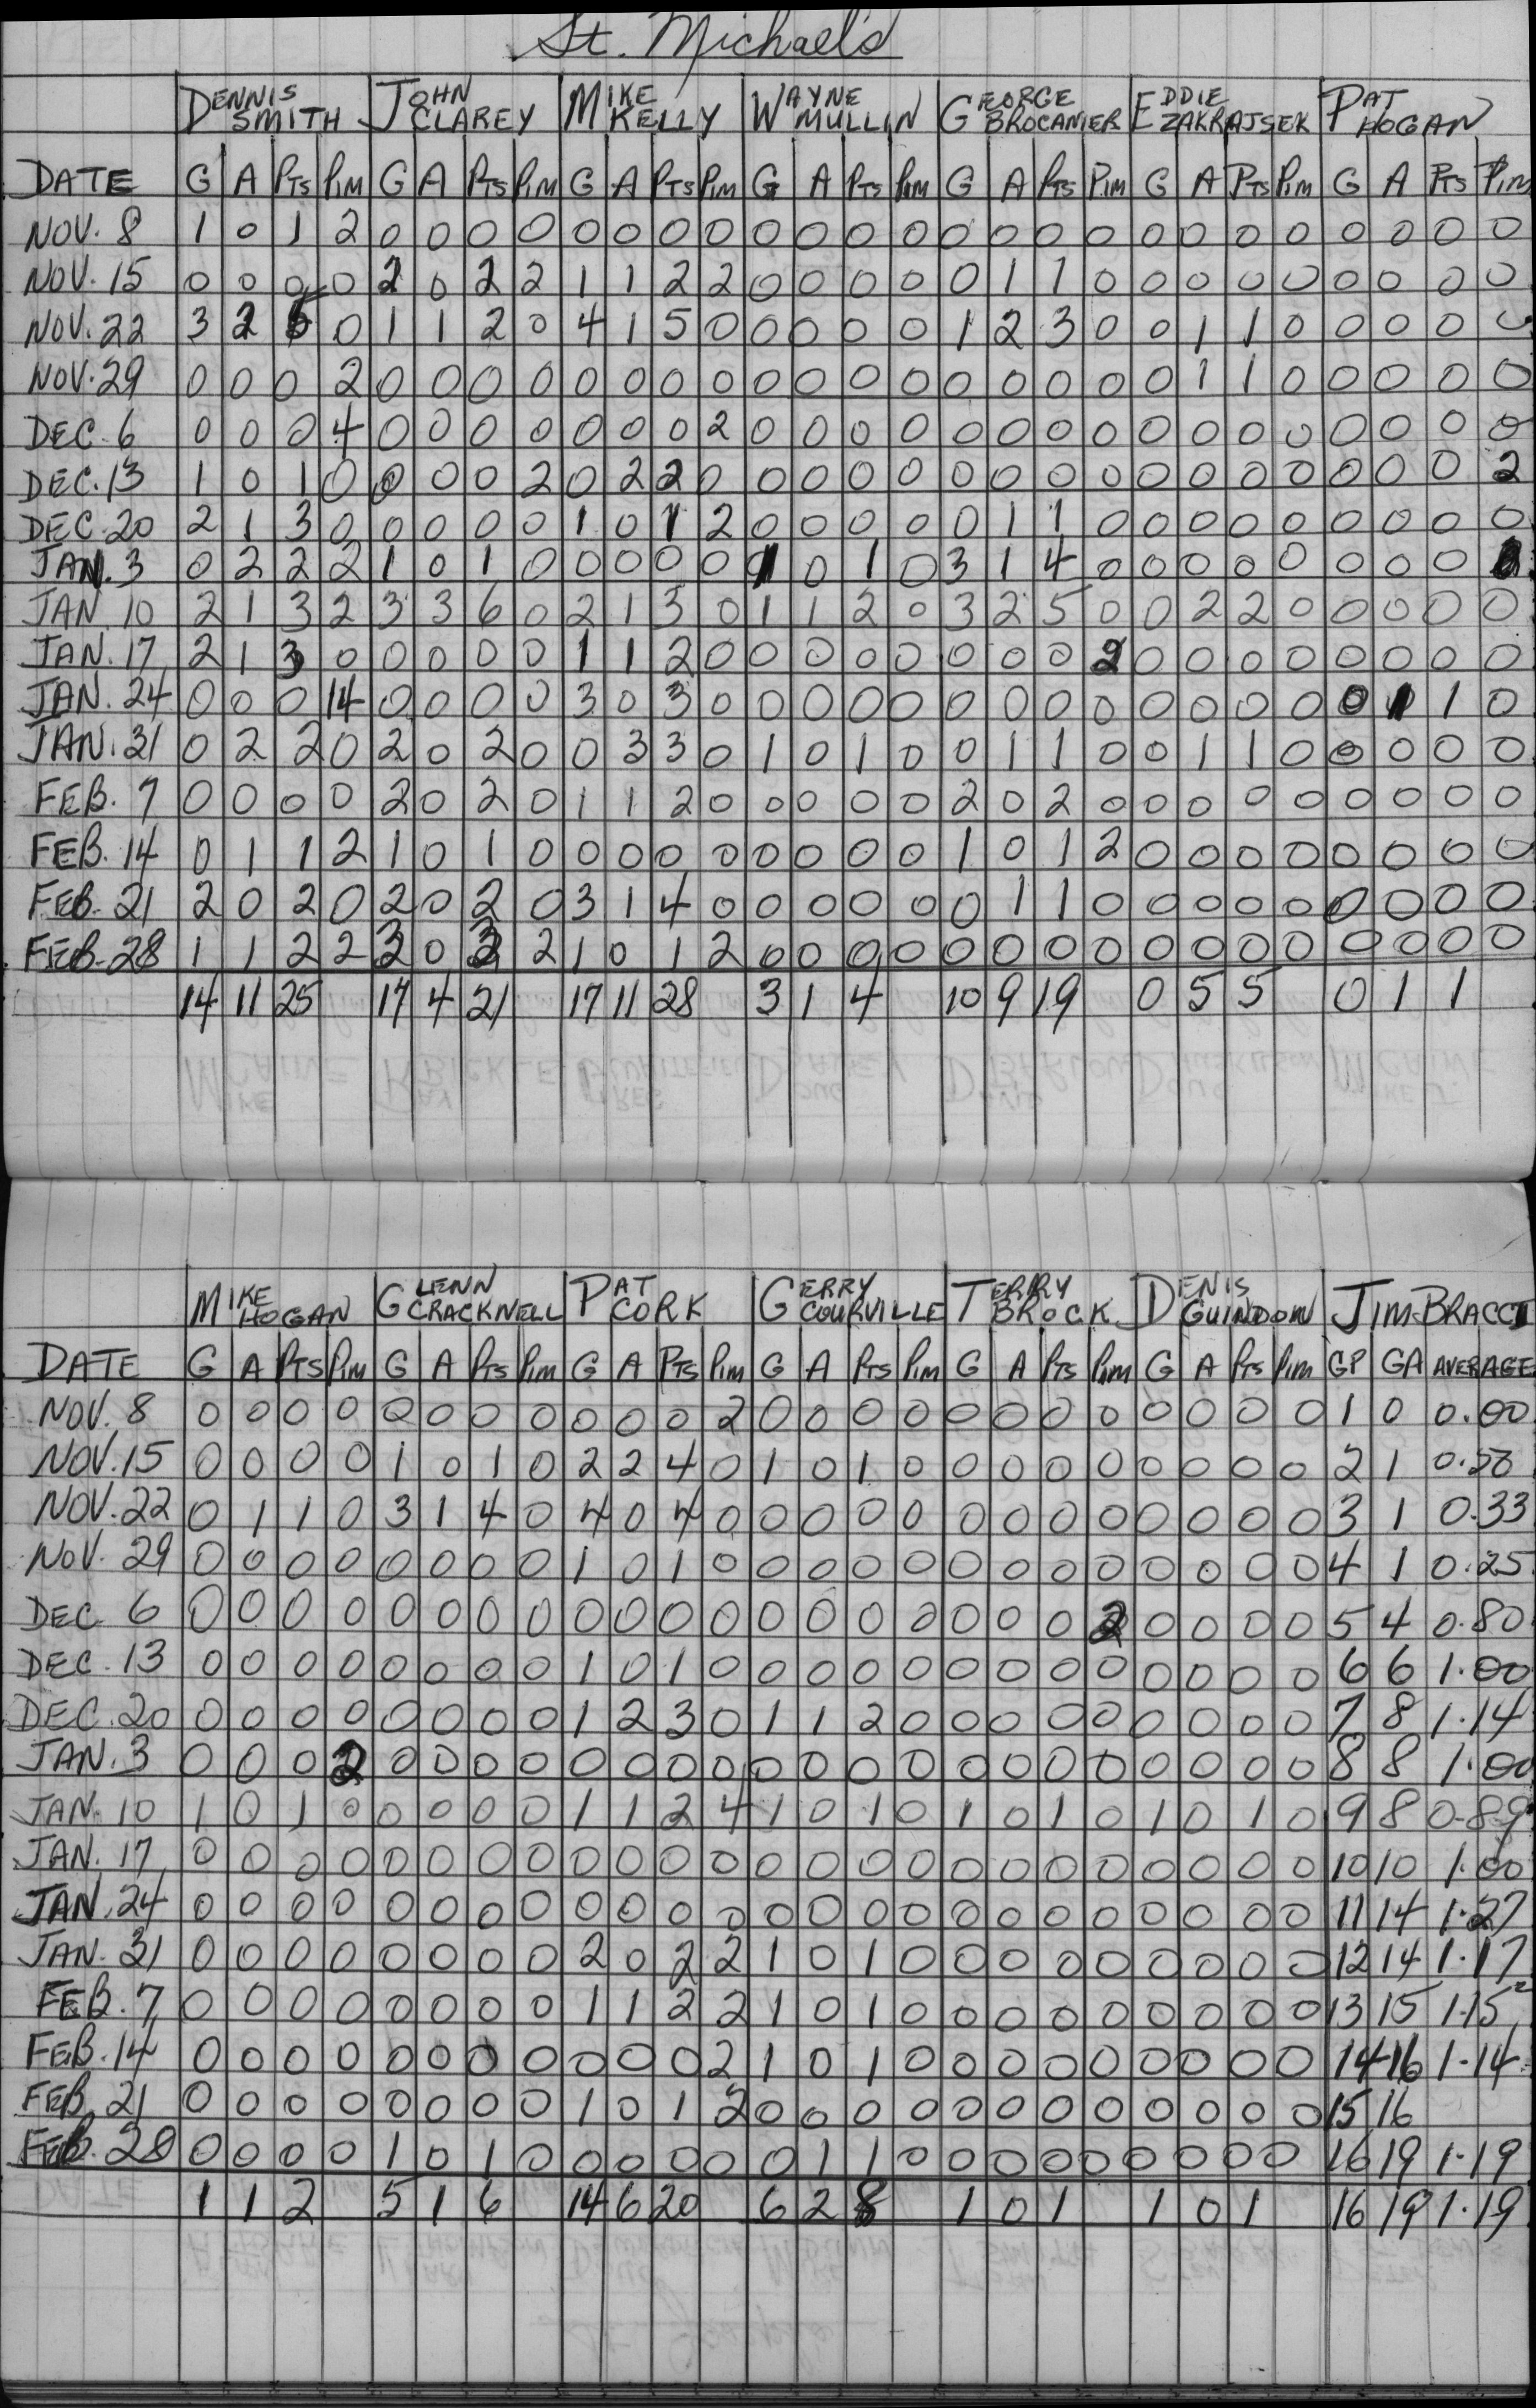 St. Michael's
DENNIS SMITH JOHN CLAREY MIKE KELLY WAYNE MULLIN GEORGE BROCANIER EDDIE ZAKRAJSEK PAT HOGAN
DATE G A PTS PIM G A PTS PIM G A PTS PIM G A PTS PIM G A PTS PIM G A PTS PIM G A PTS PIM
NOV. 8 1 0 1 2 0 0 0 0 0 0 0 0 0 0 0 0 0 0 0 0 0 0 0 0 0 0 0 0
NOV. 15 0 0 0 0 2 0 2 2 1 1 2 2 0 0 0 0 0 1 1 0 0 0 0 0 0 0 0 0
NOV. 22 3 2 5 0 1 1 2 0 4 1 5 0 0 0 0 0 1 2 3 0 0 1 1 0 0 0 0 0
NOV. 29 0 0 0 2 0 0 0 0 0 0 0 0 0 0 0 0 0 0 0 0 0 1 1 0 0 0 0 0
DEC. 6 0 0 0 4 0 0 0 0 0 0 0 2 0 0 0 0 0 0 0 0 0 0 0 0 0 0 0 0
DEC. 13 1 0 1 0 0 0 0 2 0 2 2 0 0 0 0 0 0 0 0 0 0 0 0 0 0 0 0 2
DEC. 20 2 1 3 0 0 0 0 0 1 0 1 2 0 0 0 0 0 1 1 0 0 0 0 0 0 0 0 0
JAN. 3 0 2 2 2 1 0 1 0 0 0 0 0 1 0 1 0 3 1 4 0 0 0 0 0 0 0 0
JAN. 10 2 1 3 2 3 3 6 0 2 1 3 0 1 1 2 0 3 2 5 0 0 2 2 0 0 0 0 0
JAN. 17 2 1 3 0 0 0 0 0 1 1 2 0 0 0 0 0 0 0 0 2 0 0 0 0 0 0 0 0
JAN. 24 0 0 0 14 0 0 0 0 3 0 3 0 0 0 0 0 0 0 0 0 0 0 0 0 0 1 1 0
JAN. 31 0 2 2 0 2 0 2 0 0 3 3 0 1 0 1 0 0 1 1 0 0 1 1 0 0 0 0 0
FEB. 7 0 0 0 0 2 0 2 0 1 1 2 0 0 0 0 0 2 0 2 0 0 0 0 0 0 0 0 0
FEB. 14 0 1 1 2 1 0 1 0 0 0 0 0 0 0 0 0 1 0 1 2 0 0 0 0 0 0 0 0
FEB. 21 2 0 2 0 2 0 2 0 3 1 4 0 0 0 0 0 0 1 1 0 0 0 0 0 0 0 0 0
FEB. 28 1 1 2 2 3 0 3 2 1 0 1 2 0 0 0 0 0 0 0 0 0 0 0 0 0 0 0 0
14 11 25 17 4 21 17 11 28 3 1 4 10 9 19 0 5 5 0 1 1
MIKE HOGAN GLENN CRACKNELL PAT CORK GERRY COURVILLE TERRY BROCK DENIS GUINDON JIM BRACCI
DATE G A PTS PIM G A PTS PIM G A PTS PIM G A PTS PIM G A PTS PIM G A PTS PIM GP GA AVERAGE
NOV. 8 0 0 0 0 0 0 0 0 0 0 0 2 0 0 0 0 0 0 0 0 0 0 0 0 1 0 0.00
NOV. 15 0 0 0 0 1 0 1 0 2 2 4 0 1 0 1 0 0 0 0 0 0 0 0 0 2 1 0.50
NOV. 22 0 1 1 0 3 1 4 0 4 0 4 0 0 0 0 0 0 0 0 0 0 0 0 0 3 1 0.33
NOV. 29 0 0 0 0 0 0 0 0 1 0 1 0 0 0 0 0 0 0 0 0 0 0 0 0 4 1 0.25
DEC. 6 0 0 0 0 0 0 0 0 0 0 0 0 0 0 0 0 0 0 0 2 0 0 0 0 5 4 0.80
DEC. 13 0 0 0 0 0 0 0 0 1 0 1 0 0 0 0 0 0 0 0 0 0 0 0 0 6 6 1.00
DEC. 20 0 0 0 0 0 0 0 0 1 2 3 0 1 1 2 0 0 0 0 0 0 0 0 0 7 8 1.14
JAN. 3 0 0 0 2 0 0 0 0 0 0 0 0 0 0 0 0 0 0 0 0 0 0 0 0 8 8 1.00
JAN. 10 1 0 1 0 0 0 0 0 1 1 2 4 1 0 1 0 1 0 1 0 1 0 1 0 9 8 0.89
JAN. 17 0 0 0 0 0 0 0 0 0 0 0 0 0 0 0 0 0 0 0 0 0 0 0 0 10 10 1.00
JAN. 24 0 0 0 0 0 0 0 0 0 0 0 0 0 0 0 0 0 0 0 0 0 0 0 0 11 14 1.27
JAN. 31 0 0 0 0 0 0 0 0 2 0 2 2 1 0 1 0 0 0 0 0 0 0 0 0 12 14 1.17
FEB. 7 0 0 0 0 0 0 0 0 1 1 2 2 1 0 1 0 0 0 0 0 0 0 0 0 13 15 1.15
FEB. 14 0 0 0 0 0 0 0 0 0 0 0 2 1 0 1 0 0 0 0 0 0 0 0 0 14 16 1.14
FEB. 21 0 0 0 0 0 0 0 0 1 0 1 2 0 0 0 0 0 0 0 0 0 0 0 0 15 16
FEB. 28 0 0 0 0 1 0 1 0 0 0 0 0 0 1 1 0 0 0 0 0 0 0 0 0 16 19 1.19
1 1 2 5 1 6 14 6 20 6 2 8 1 0 1 1 0 1 16 19 1.19